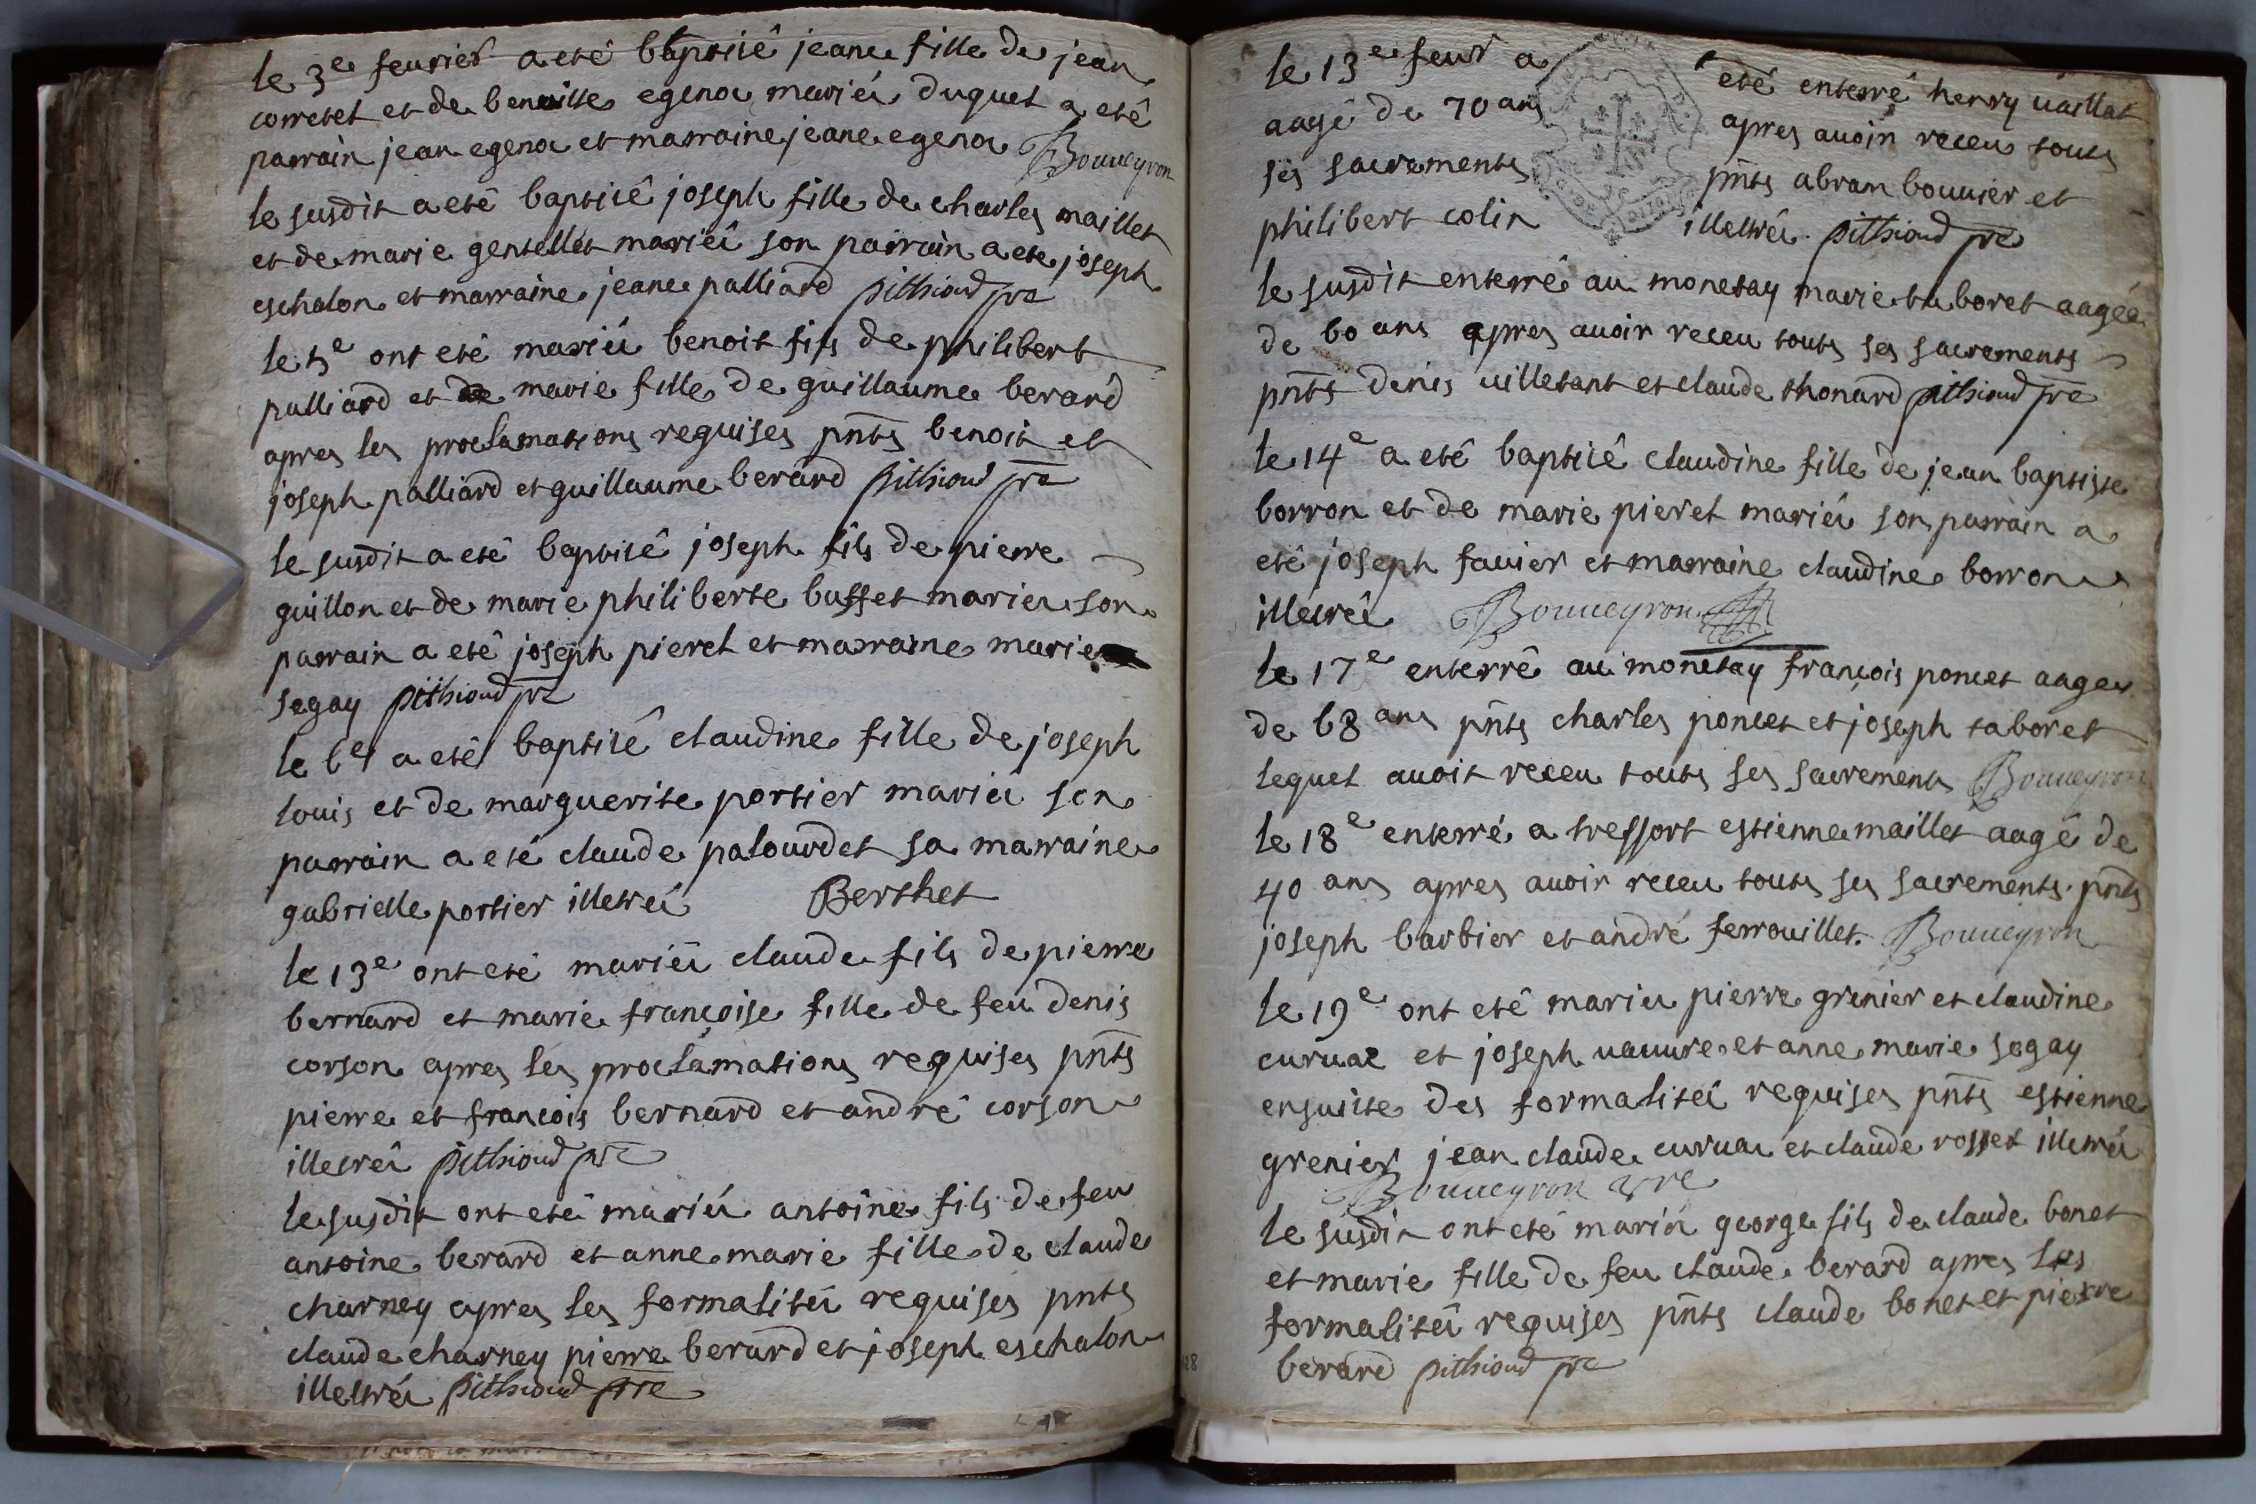 le 3e feurier a eté baptisê jeane fille de jean
corretet et de benoitte egenoa mariés duquel a eté
parrain jean egenoa et marraine jeane egenoa Bouueyron
le susdit a etê baptisê joseph fille de charles maillet
et de marie gentellet mariés son parrain a ete joseph
eschalon et marraine jeane palliard pithioud pre
le 5e ont eté mariés benoit fils de philibert
palliard et de marie fille de guillaume berard
apres les proclamations requises pnts benoit et
joseph palliard et guillaume berard pithioud pre
le susdit a etê baptisê joseph fils de pierre
guillon et de marie philiberte buffet mariés son
parrain a etê joseph pieret et marraine marie
segay pithioud pre
le 6e a eté baptisê claudine fille de joseph
louis et de marguerite portier mariés son
parrain a eté claude palourdet sa marraine
gabrielle portier illetrés Berthet
le 13e ont eté mariés claude fils de pierre
bernard et marie françoise fille de feu denis
corson apres les proclamations requises pnts
pierre et françois bernard et andrê corson
illetrés pithioud pre
le susdit ont etê mariés antoine fils de feu
antoine berard et anne marie fille de claude
charney apres les formalités requises pnts
claude charney pierre berard et joseph eschalon
illetrés pithioud pre
le 13e feur a eté enterré henry uaillat
aagé de 70 ans apres auoir receu touts
ses sacrements pnts abran bouuier et
philibert colin illetrés pithioud pre
le susdit enterrê au monetay marie taboret aagée
de 60 ans apres auoir receu touts ses sacrements
pnts denis uilletant et claude thonard pithioud pre
le 14e a etê baptisê claudine fille de jean baptiste
borron et de marie pieret mariés son parrain a
etê joseph fauier et marraine claudine borron
illetrés Bouueyron
le 17e enterrê au monetay françois poncet aagé
de 68 ans pnts charles poncet et joseph taboret
lequel auoit receu touts ses sacrements Bouueyron
le 18e enterré a tressort estienne maillet aagê de
40 ans apres auoir receu touts ses sacrements pnts
joseph barbier et andré ferrouillet. Bouueyron
le 19e ont etê mariés pierre grenier et claudine
curuae et joseph uauure et anne marie segay
ensuitte des formalités requises pnts estienne
grenier jean claude curuae et claude rosset illetrés
Bouueyron pre
le susdit ont etê mariés george fils de claude bonet
et marie fille de feu claude berard apres les
formalités requises pnts claude bonet et pierre
berard pithioud pre